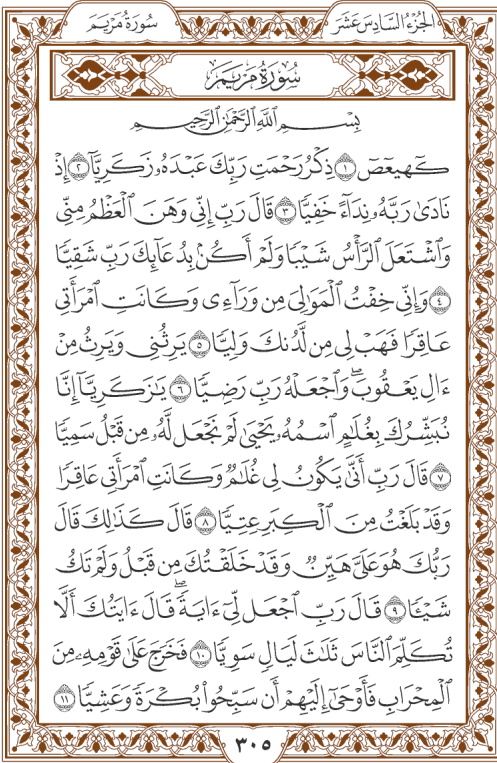 الجُزْءُ السَّادِسَ عَشَرَ
سُورَةُ مَرْيَم
سُورَةُ مَرْيَم
بِسْمِ اللَّهِ الرَّحْمَٰنِ الرَّحِيمِ
كٓهيعٓصٓ ١ ذِكْرُ رَحْمَتِ رَبِّكَ عَبْدَهُۥ زَكَرِيَّآ ٢ إِذْ
نَادَىٰ رَبَّهُۥ نِدَآءً خَفِيًّا ٣ قَالَ رَبِّ إِنِّى وَهَنَ ٱلْعَظْمُ مِنِّى
وَٱشْتَعَلَ ٱلرَّأْسُ شَيْبًا وَلَمْ أَكُنۢ بِدُعَآئِكَ رَبِّ شَقِيًّا
٤ وَإِنِّى خِفْتُ ٱلْمَوَٰلِىَ مِن وَرَآءِى وَكَانَتِ ٱمْرَأَتِى
عَاقِرًا فَهَبْ لِى مِن لَّدُنكَ وَلِيًّا ٥ يَرِثُنِى وَيَرِثُ مِنْ
ءَالِ يَعْقُوبَ ۖ وَٱجْعَلْهُ رَبِّ رَضِيًّا ٦ يَٰزَكَرِيَّآ إِنَّا
نُبَشِّرُكَ بِغُلَٰمٍ ٱسْمُهُۥ يَحْيَىٰ لَمْ نَجْعَل لَّهُۥ مِن قَبْلُ سَمِيًّا
٧ قَالَ رَبِّ أَنَّىٰ يَكُونُ لِى غُلَٰمٌ وَكَانَتِ ٱمْرَأَتِى عَاقِرًا
وَقَدْ بَلَغْتُ مِنَ ٱلْكِبَرِ عِتِيًّا ٨ قَالَ كَذَٰلِكَ قَالَ
رَبُّكَ هُوَ عَلَىَّ هَيِّنٌ وَقَدْ خَلَقْتُكَ مِن قَبْلُ وَلَمْ تَكُ
شَيْـًٔا ٩ قَالَ رَبِّ ٱجْعَل لِّىٓ ءَايَةً ۚ قَالَ ءَايَتُكَ أَلَّا
تُكَلِّمَ ٱلنَّاسَ ثَلَٰثَ لَيَالٍ سَوِيًّا ١٠ فَخَرَجَ عَلَىٰ قَوْمِهِۦ مِنَ
ٱلْمِحْرَابِ فَأَوْحَىٰٓ إِلَيْهِمْ أَن سَبِّحُوا۟ بُكْرَةً وَعَشِيًّا ١١
٣٠٥